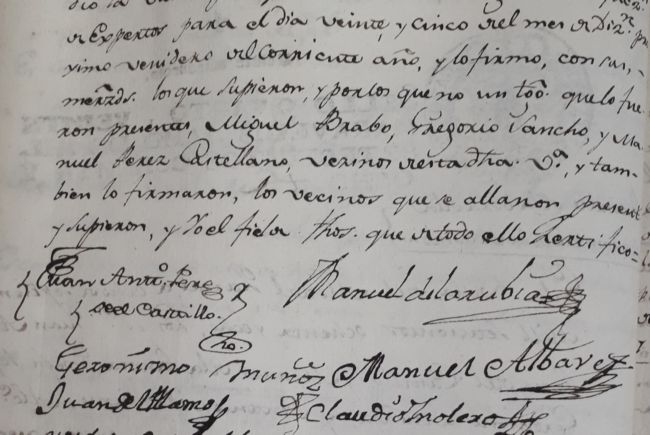 de Expertos para el dia veinte, y cinco del mes de Diz.e pro
ximo venidero del corriente año, y lo firmo, con sus,
merzds. los que supieron, y por los que no un tgo. que lo fue
ron presentes, Miguel Brabo, Gregorio Sancho, y Ma
nuel Perez Castellano, vezinos de esta dha. V.a, y tam-
bien lo firmaron, los vecinos que se allaron present
y supieron, y Yo el fiel de fhos. que de todo ello Zertifico=
Juan Anto. Perez
del Castillo.
Manuel de la rubia
Geronimo Muñoz
Manuel Albarez
Juan del Alamo
Claudio Molero